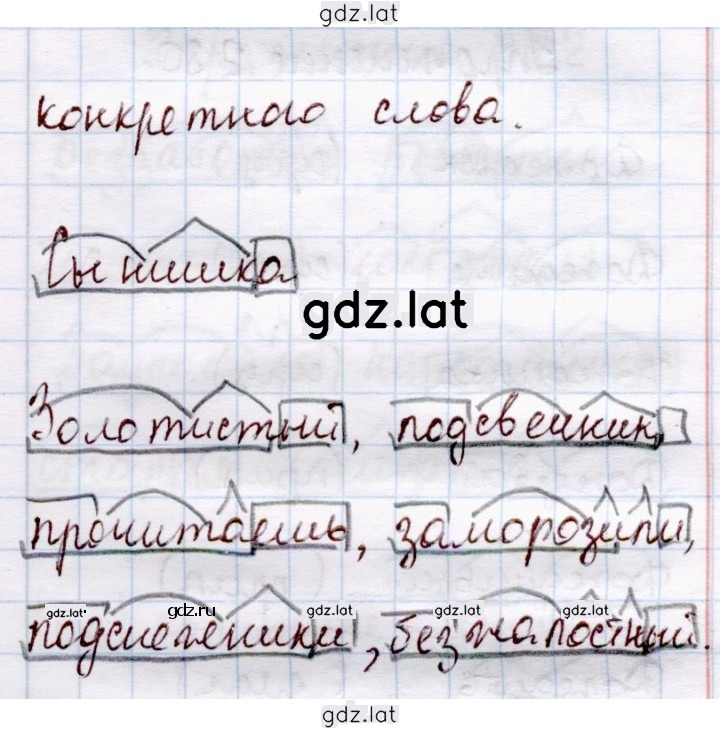 gdz.lat
конкретного слова.
Сынишка
gdz.lat
Золотистый, подсвечник,
прочитаешь, заморозили,
gdz.lat gdz.ru gdz.lat gdz.lat gdz.lat
подснежники, безжалостный.
gdz.lat